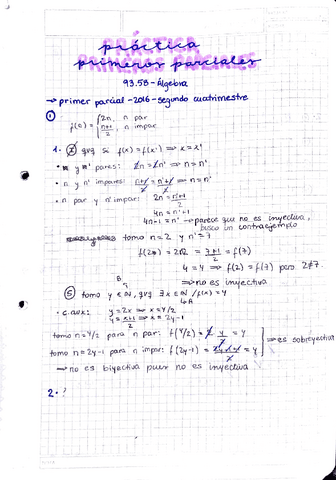 práctica
primeros parciales
93.58 - Álgebra
→ primer parcial - 2016 - segundo cuatrimestre
① f(n) = { 2n, n par
n+1/2, n impar
1. qvq si f(x) = f(x') ⇒ x = x'
• n y n' pares: 2n = 2n' ⇒ n = n'
• n y n' impares: n+1/2 = n'+1/2 ⇒ n = n'
• n par y n' impar: 2n = n'+1/2
4n = n'+1
4n-1 = n' → parece que no es inyectiva, busco un contraejemplo
tomo n=2 y n'=7
f(2) = 2·2 = 7+1/2 = f(7)
4 = 4 ⇒ f(2) = f(7) pero 2≠7.
→ no es inyectiva
Ⓢ tomo y ∈ ℕ, qvq ∃ x ∈ ℕ / f(x) = y
B
A
• c. aux: y = 2x ⇒ x = y/2
y = x+1/2 ⇒ x = 2y-1
tomo n = y/2 para n par: f(y/2) = 2 y/2 = y
tomo n = 2y-1 para n impar: f(2y-1) = 2y-1+1/2 = y
⇒ es sobreyectiva
→ no es biyectiva pues no es inyectiva
2. ?